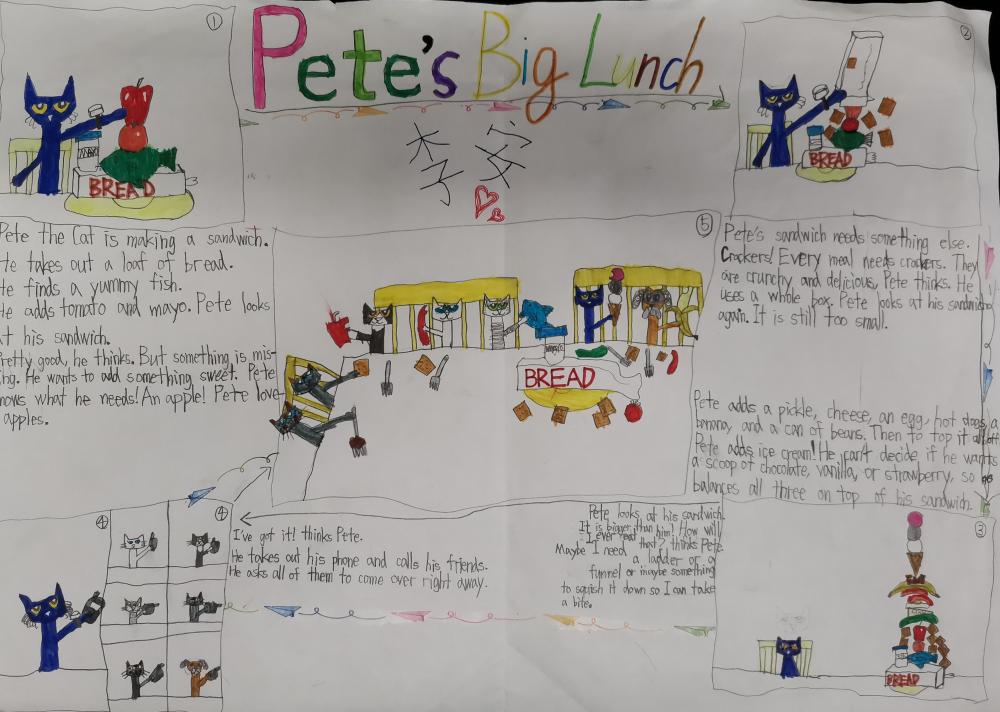 Pete's Big Lunch
李安
①
MAYO
BREAD
Pete the Cat is making a sandwich.
He takes out a loaf of bread.
He finds a yummy fish.
He adds tomato and mayo. Pete looks
at his sandwich.
Pretty good, he thinks. But something is mis-
ing. He wants to add something sweet. Pete
knows what he needs! An apple! Pete love
apples.
②
BREAD
Pete's sandwich needs something else.
Crackers! Every meal needs crackers. They
are crunchy and delicious, Pete thinks. He
uses a whole box. Pete looks at his sandwich
again. It is still too small.
Pete adds a pickle, cheese, an egg, hot dogs, a
banana, and a can of beans. Then to top it all off
Pete adds ice cream! He can't decide if he wants
a scoop of chocolate, vanilla, or strawberry, so he
balances all three on top of his sandwich.
③
BREAD
Pete looks at his sandwich.
It is bigger than him! How will
I ever eat that? thinks Pete.
Maybe I need a ladder or a
funnel or maybe something
to squish it down so I can take
a bite.
④
④
I've got it! thinks Pete.
He takes out his phone and calls his friends.
He asks all of them to come over right away.
⑤
BREAD